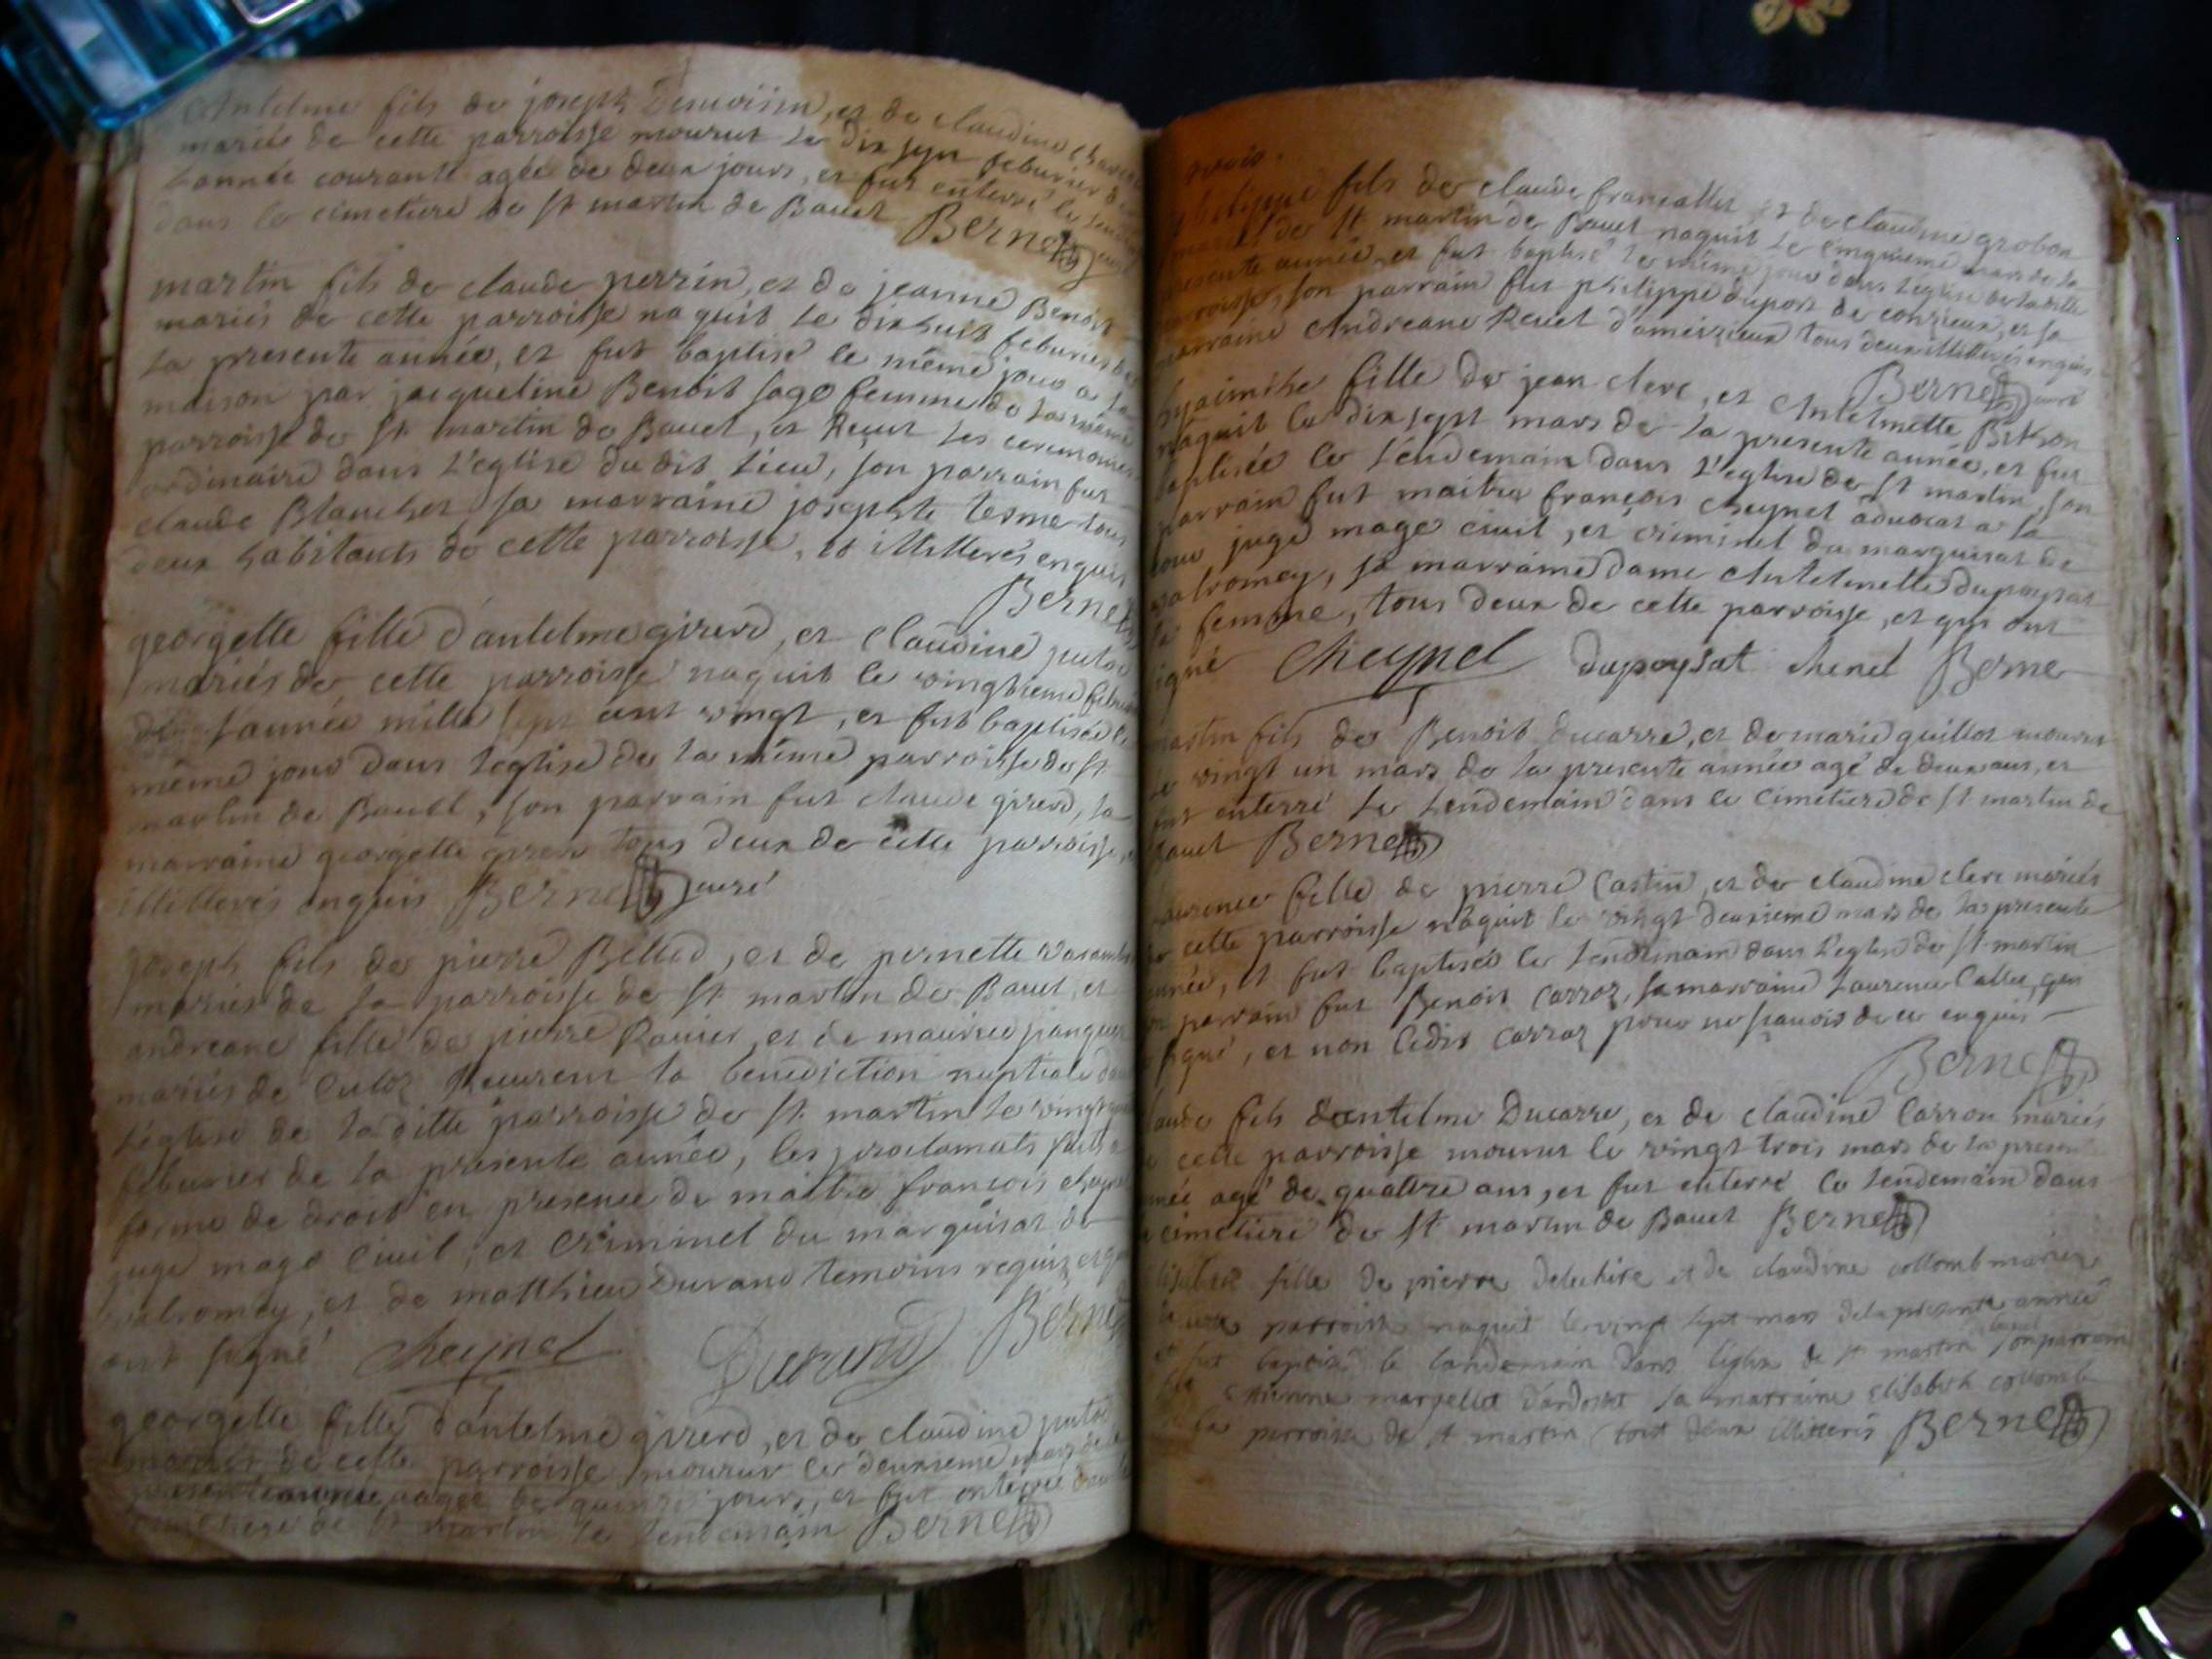 Antelme fils de joseph Deuvoisin, et de claudine
mariés de cette parroisse mourut le dix sept feburier de
L'année courante agée de deux jours, et fut enterré le
dans le cimetiere de st martin de Bavet Berne curé
martin fils de claude perrin, et de jeanne Benoit
mariés de cette parroisse naquit le dixhuit feburier de
la presente année, et fut baptisé le même jour a la
maison par jacqueline Benoit sage femme de la même
parroisse de st martin de Bavet, et Reçut les ceremonies
ordinaire dans L'eglise du dit Lieu, son parrain fut
claude Blanchet sa marraine josephte terme tous
deux habitants de cette parroisse, et illitterés enquis
Berne
georgette fille d'antelme girerd, et claudine
mariés de cette parroisse naquit le vingtieme
de L'année mille sept cent vingt, et fut baptisée le
même jour dans Leglise de la même parroisse de st
martin de Bavet, son parrain fut claude girerd, sa
marraine georgette girerd tous deux de cette parroisse,
illitterés enquis Berne curé
joseph fils de pierre Bellod, et de pernette
mariés de la parroisse de st martin de Bavet, et
andreane fille de pierre Ravier, et de maurice
mariés de Culoz Reçurent la benediction nuptiale
L'église de la ditte parroisse de st martin le vingt
feburier de la presente année, les proclamats faits
forme de droit en presence de maitre françois
juge mage Civil, et Criminel du marquisat de
valromey, et de matthieu Durand temoins requis et qui
ont signé Cheynel Durand Berne
georgette fille d'antelme girerd, et de claudine
mariés de cette parroisse mourut le deuxieme mars de
presente année agée de quinze jours, et fut enterrée dans
cimetiere de st martin le Lendemain Berne
mois.
philippe fils de claude francallet et de claudine grobon
mariés de st martin de Bavet naquit le cinquieme mars de la
presente année, et fut baptisé le même jour dans Leglise de la ditte
parroisse, son parrain fut philippe dupont de conzieux, et sa
marraine Andreane Revet d'ameizieux tous deux illitterés enquis
Berne curé
hyacinthe fille de jean clerc, et Antelmette Bikson
naquit le dix sept mars de la presente année, et fut
baptisée le Lendemain dans L'eglise de st martin, son
parrain fut maitre françois cheynel advocat a la
cour juge mage civil, et criminel du marquisat de
valromey, sa marraine Dame Antelmette dupoysat
sa femme, tous deux de cette parroisse, et qui ont
signé Cheynel Dupoysat chenel Berne
martin fils de Benoit Ducarre, et de marie guillot mourut
le vingt un mars de la presente année agé de deux ans, et
fut enterré le Lendemain dans le cimetiere de st martin de
Bavet Berne
Laurence fille de pierre Castin, et de claudine clerc mariés
de cette parroisse naquit le vingt deuxieme mars de la presente
année, et fut baptisée le Lendemain dans L'eglise de st martin
son parrain fut Benoit Carraz, sa marraine Laurence Callet, qui
signé, et non ledit Carraz pour ne sçavoir de ce enquis
Berne
claude fils dantelme Ducarre, et de claudine Carron mariés
de cette parroisse mourut le vingt trois mars de la presente
année agé de quattre ans, et fut enterré le Lendemain dans
le cimetiere de st martin de Bavet Berne
Elisabeth fille de pierre delechire et de claudine collomb mariez
de cette parroisse naquit le vingt sept mars dela presente année
et fut baptisé le landemain dans léglise de st martin son parrain
fut Etienne margellet d'ardosset sa marraine Elisabeth collomb
de la parroisse de st martin tout deux illitterés Berne